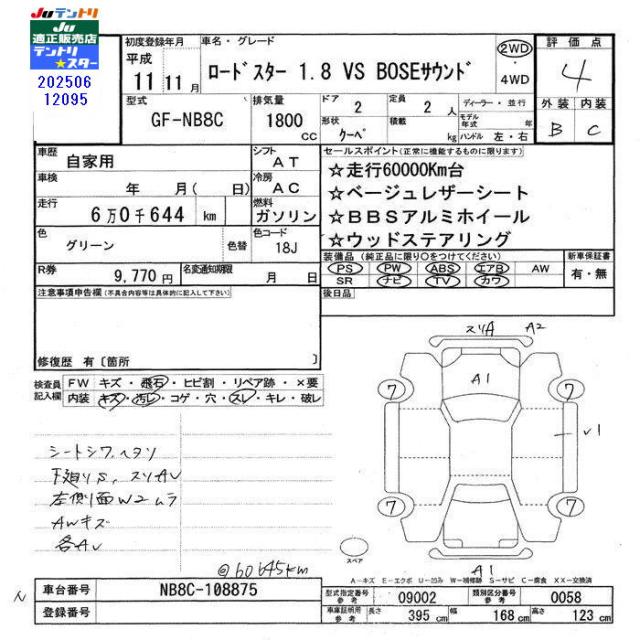 JUテントリ
JU
適正販売店
テントリ
★スター
202506
12095
初度登録年月
平成
11 年 11 月
車名・グレード
ロードスター 1.8 VS BOSEサウンド
2WD
4WD
評価点
4
外装 内装
B C
型式
GF-NB8C
排気量
1800
CC
ドア
2
形状
クーペ
定員
2 人
積載
kg
ディーラー・並行
モデル年式 年
ハンドル 左・右
車歴
自家用
シフト
AT
車検
年 月( 日)
冷房
AC
走行
6万0千644 km
燃料
ガソリン
色
グリーン
色替
色コード
18J
R券
9,770円
名変通知期限
月 日
セールスポイント(正常に機能するものに限ります)
☆走行60000Km台
☆ベージュレザーシート
☆BBSアルミホイール
☆ウッドステアリング
装備品(純正品に限り○をつけてください)
新車保証書
PS PW ABS エアB AW
SR ナビ TV カワ
有・無
後日品
注意事項申告欄(不具合内容等は具体的に記入して下さい)
修復歴 有〔箇所 〕
検査員
記入欄
FW キズ・飛石・ヒビ割・リペア跡・×要
内装 キズ・汚レ・コゲ・穴・スレ・キレ・破レ
シートシワ、ヘタリ
下廻りS、スリAU
左側面W2ムラ
AWキズ
各AU
@60645km
スリA A2
A1
7 7
7 7
U1
スペア
A1
A-キズ E-エクボ U-凹み W-補修跡 S-サビ C-腐食 XX-交換済
車台番号
NB8C-108875
登録番号
型式指定番号
参考
09002
類別区分番号
参考
0058
車庫証明用
参考
長さ 395 cm
幅 168 cm
高さ 123 cm